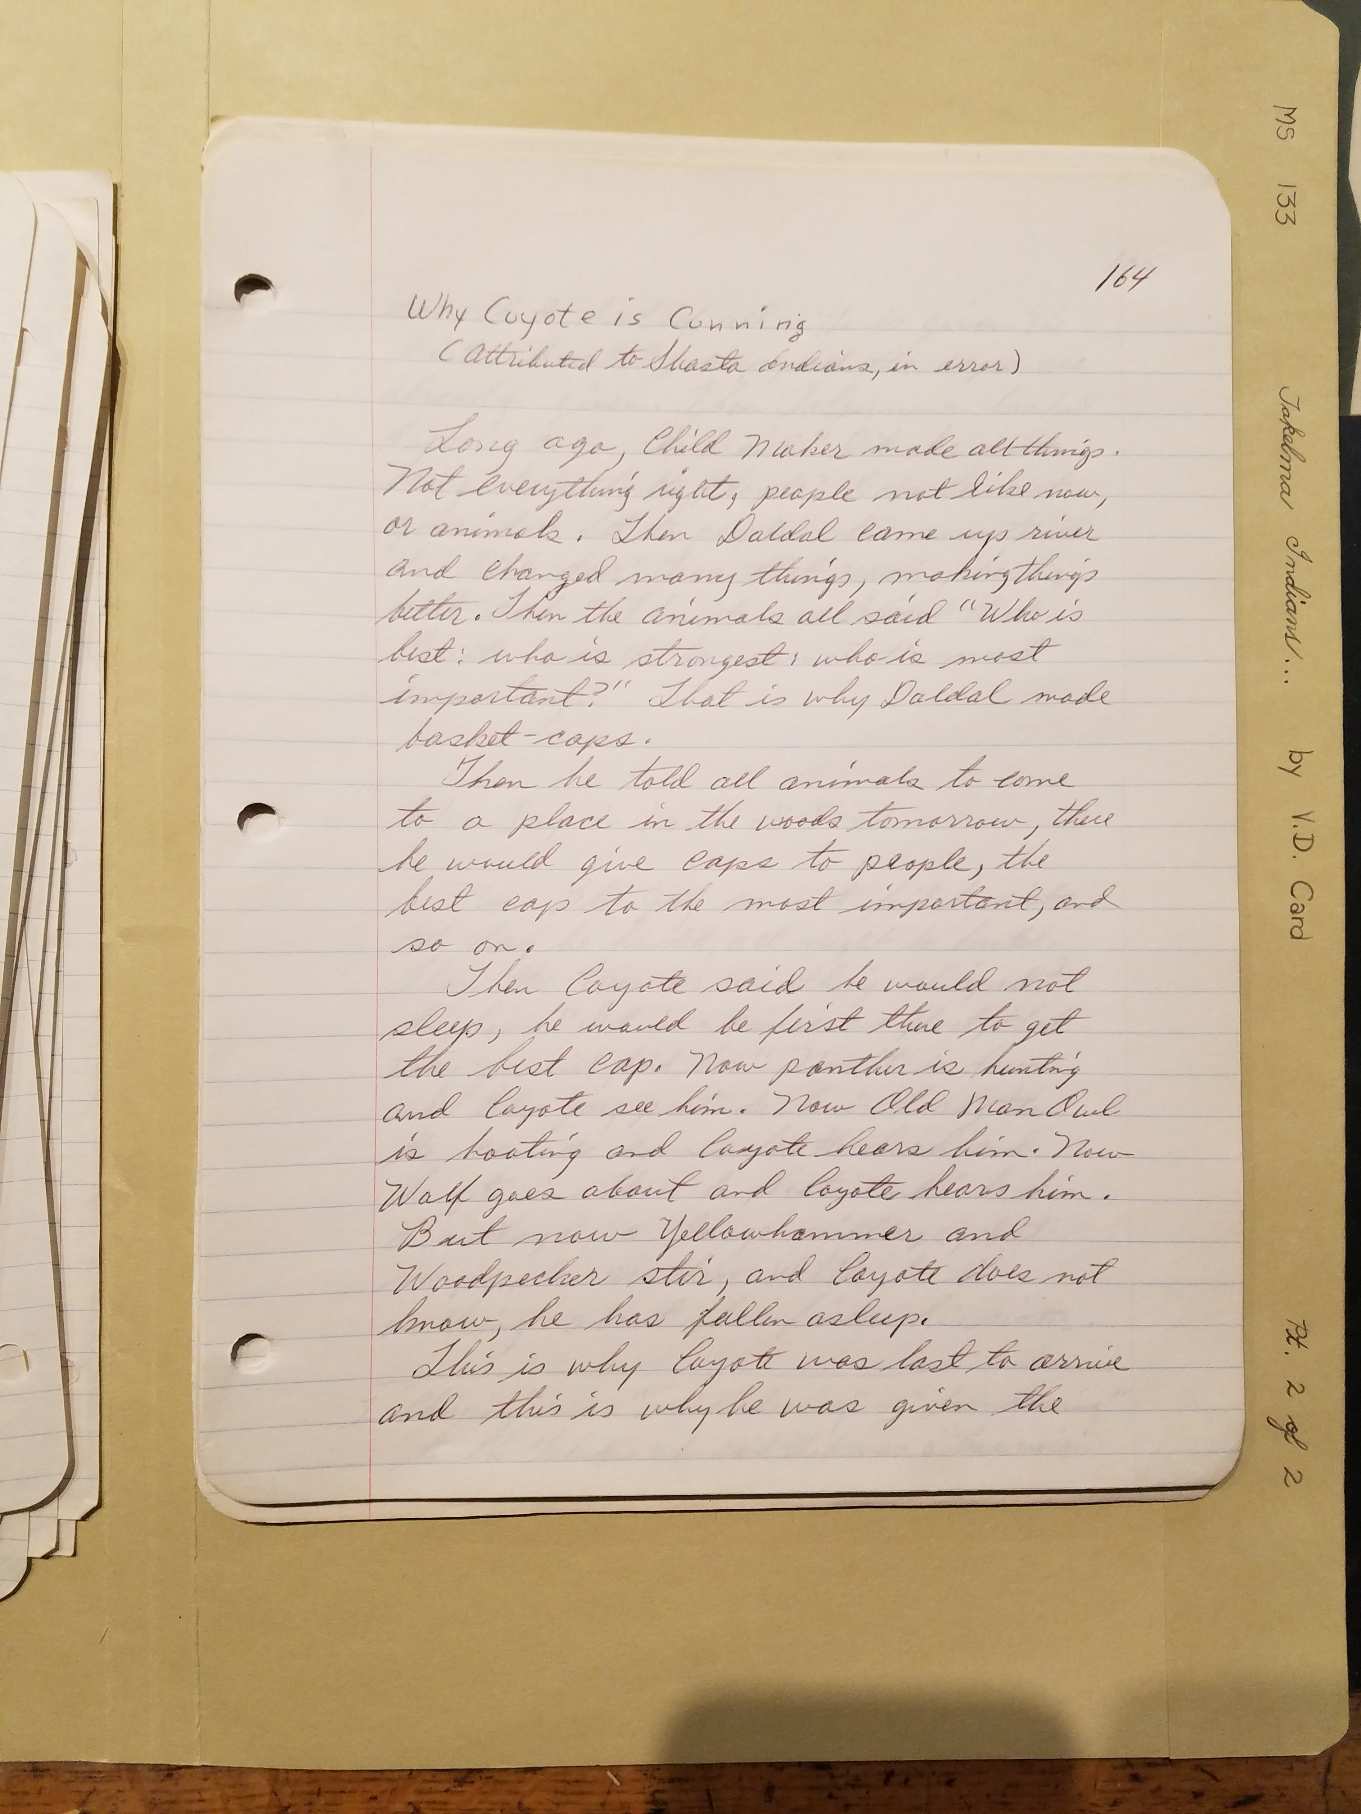 164
Why Coyote is Cunning
(Attributed to Shasta Indians, in error)
Long ago, Child Maker made all things.
Not everything right, people not like now,
or animals. Then Daldal came up river
and changed many things, making things
better. Then the animals all said "Who is
best: who is strongest: who is most
important?" That is why Daldal made
basket-caps.
Then he told all animals to come
to a place in the woods tomorrow, there
he would give caps to people, the
best cap to the most important, and
so on.
Then Coyote said he would not
sleep, he would be first there to get
the best cap. Now panther is hunting
and Coyote see him. Now Old Man Owl
is hooting and Coyote hears him. Now
Wolf goes about and Coyote hears him.
But now Yellowhammer and
Woodpecker stir, and Coyote does not
know, he has fallen asleep.
This is why Coyote was last to arrive
and this is why he was given the
MS 133 Takelma Indians... by V.D. Card Pt. 2 of 2